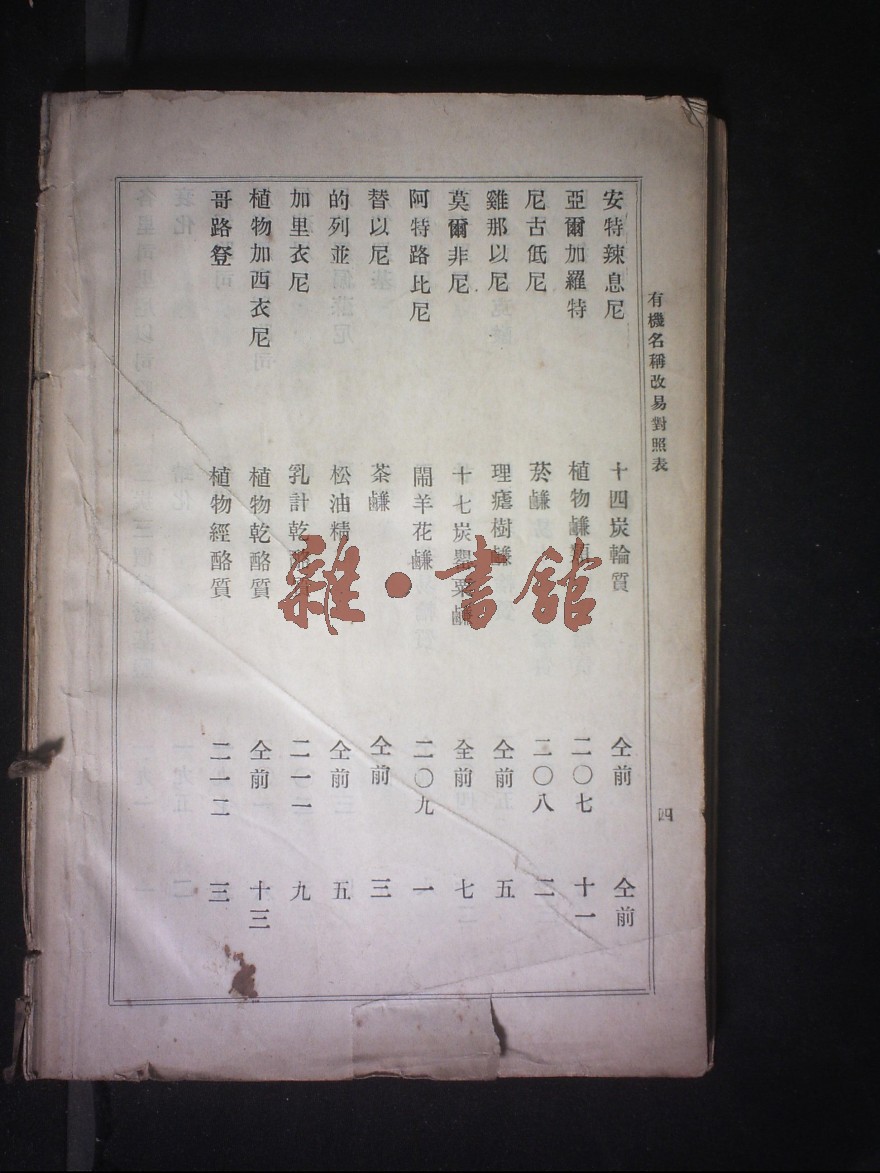 有機名稱改易對照表
四
安特辣息尼 十四炭輪質 仝前 仝前
亞爾加羅特 植物鹻類 二〇七 十一
尼古低尼 菸鹻 二〇八 二
雞那以尼 理瘧樹鹻 仝前 五
莫爾非尼 十七炭罌粟鹻 仝前 七
阿特路比尼 鬧羊花鹻 二〇九 一
替以尼 茶鹻 仝前 三
的列並 松油精 仝前 五
加里衣尼 乳計乾酪 二一二 九
植物加西衣尼 植物乾酪質 仝前 十三
哥路登 植物經酪質 二一二 三
雜·書館